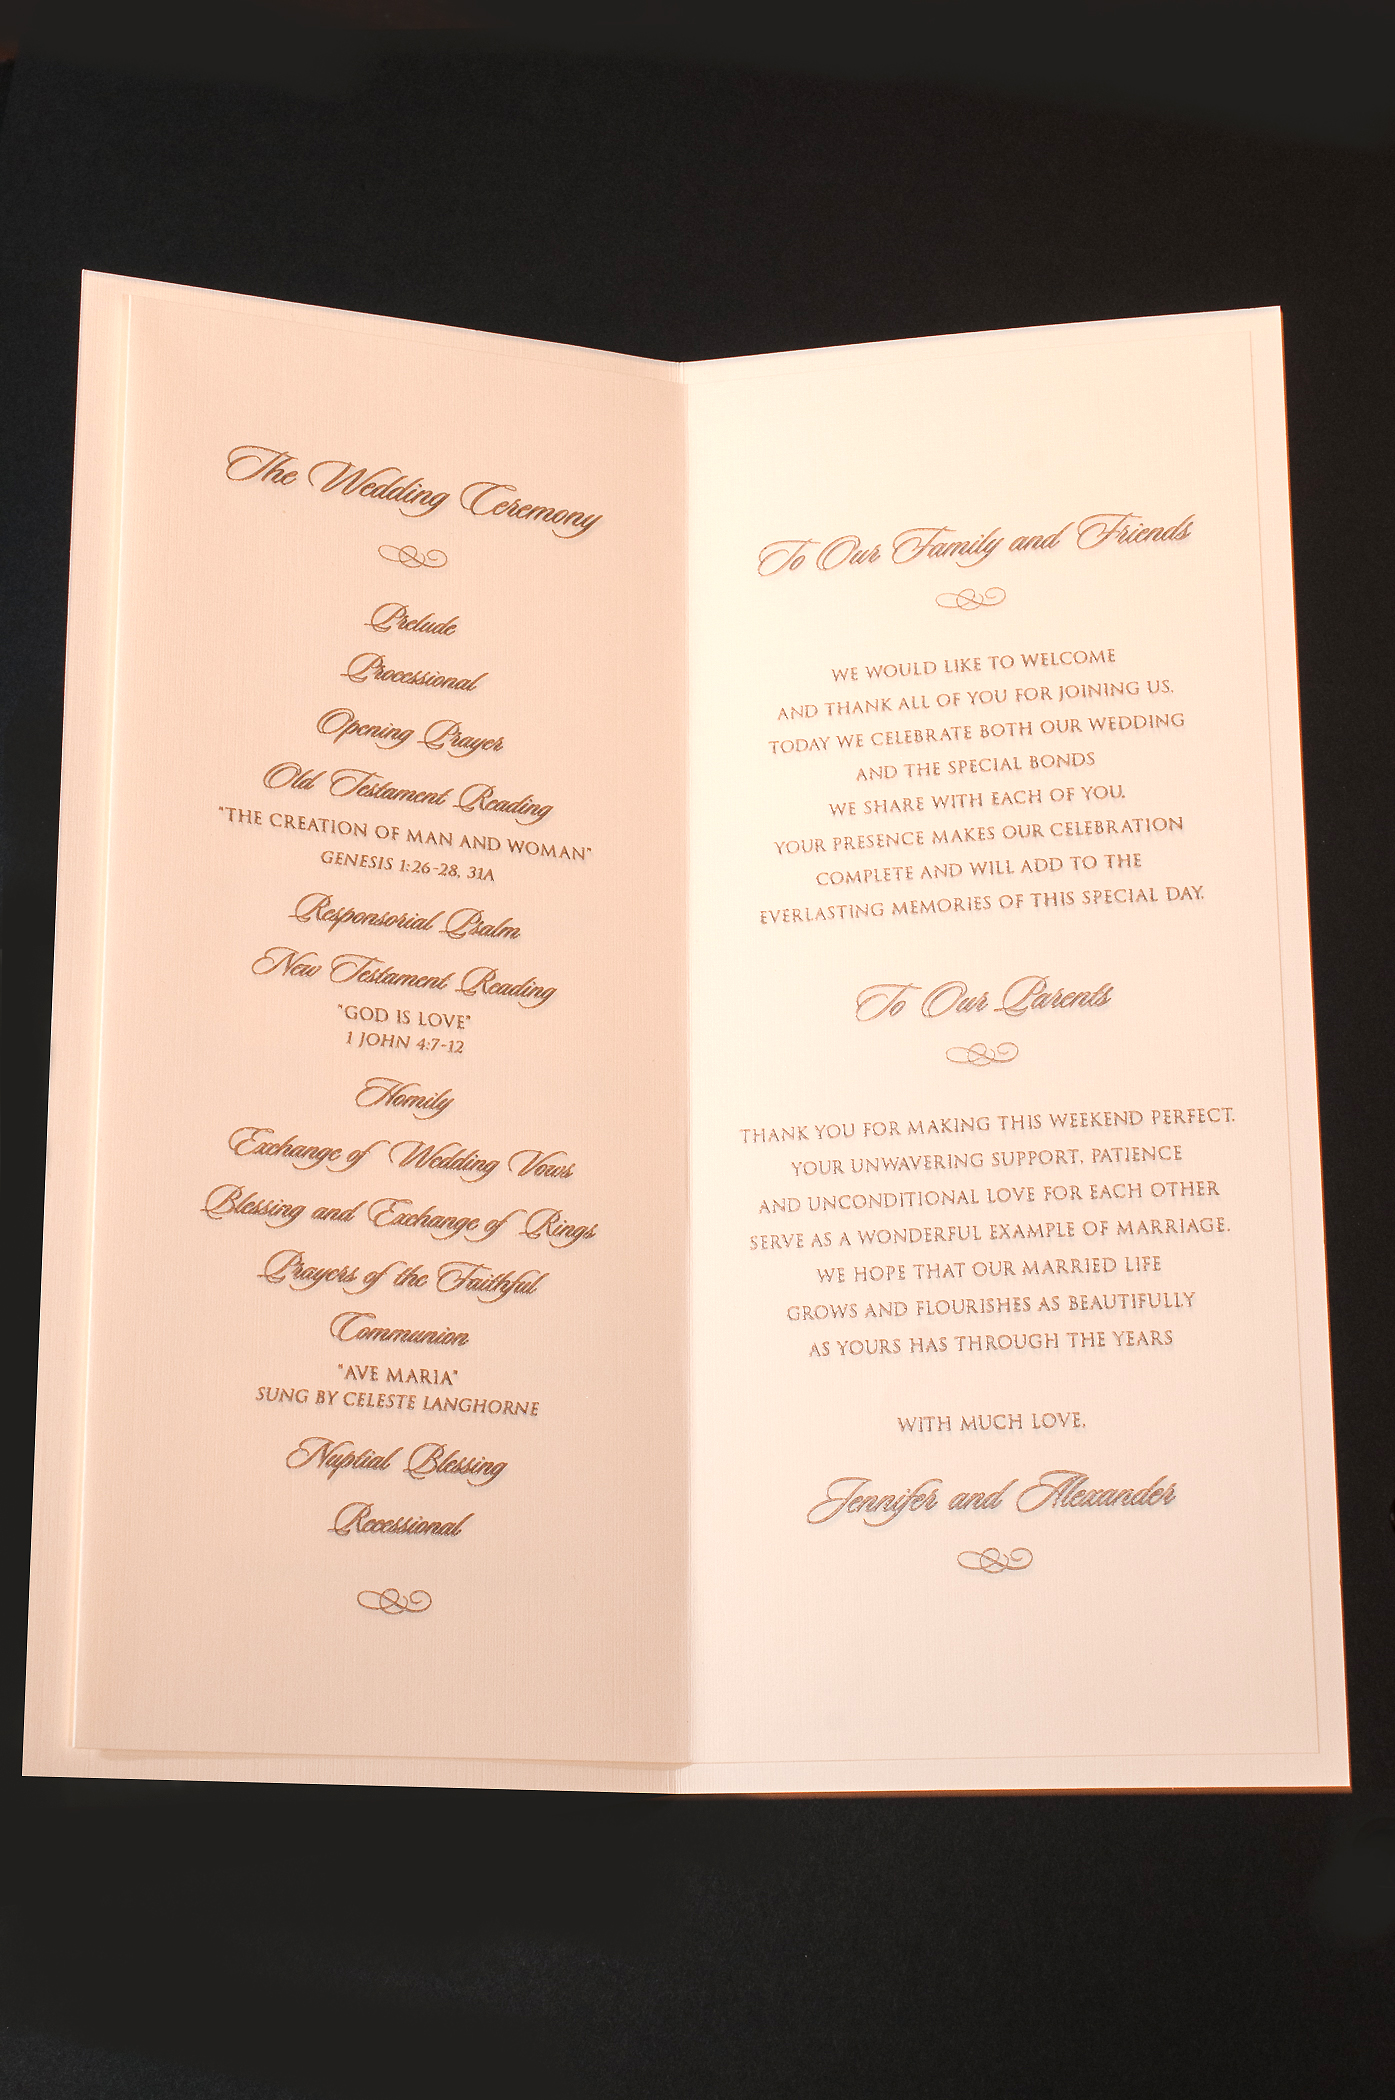 The Wedding Ceremony
Prelude
Processional
Opening Prayer
Old Testament Reading
"THE CREATION OF MAN AND WOMAN"
GENESIS 1:26-28, 31A
Responsorial Psalm
New Testament Reading
"GOD IS LOVE"
1 JOHN 4:7-12
Homily
Exchange of Wedding Vows
Blessing and Exchange of Rings
Prayers of the Faithful
Communion
"AVE MARIA"
SUNG BY CELESTE LANGHORNE
Nuptial Blessing
Recessional
To Our Family and Friends
WE WOULD LIKE TO WELCOME
AND THANK ALL OF YOU FOR JOINING US.
TODAY WE CELEBRATE BOTH OUR WEDDING
AND THE SPECIAL BONDS
WE SHARE WITH EACH OF YOU.
YOUR PRESENCE MAKES OUR CELEBRATION
COMPLETE AND WILL ADD TO THE
EVERLASTING MEMORIES OF THIS SPECIAL DAY.
To Our Parents
THANK YOU FOR MAKING THIS WEEKEND PERFECT.
YOUR UNWAVERING SUPPORT, PATIENCE
AND UNCONDITIONAL LOVE FOR EACH OTHER
SERVE AS A WONDERFUL EXAMPLE OF MARRIAGE.
WE HOPE THAT OUR MARRIED LIFE
GROWS AND FLOURISHES AS BEAUTIFULLY
AS YOURS HAS THROUGH THE YEARS
WITH MUCH LOVE,
Jennifer and Alexander